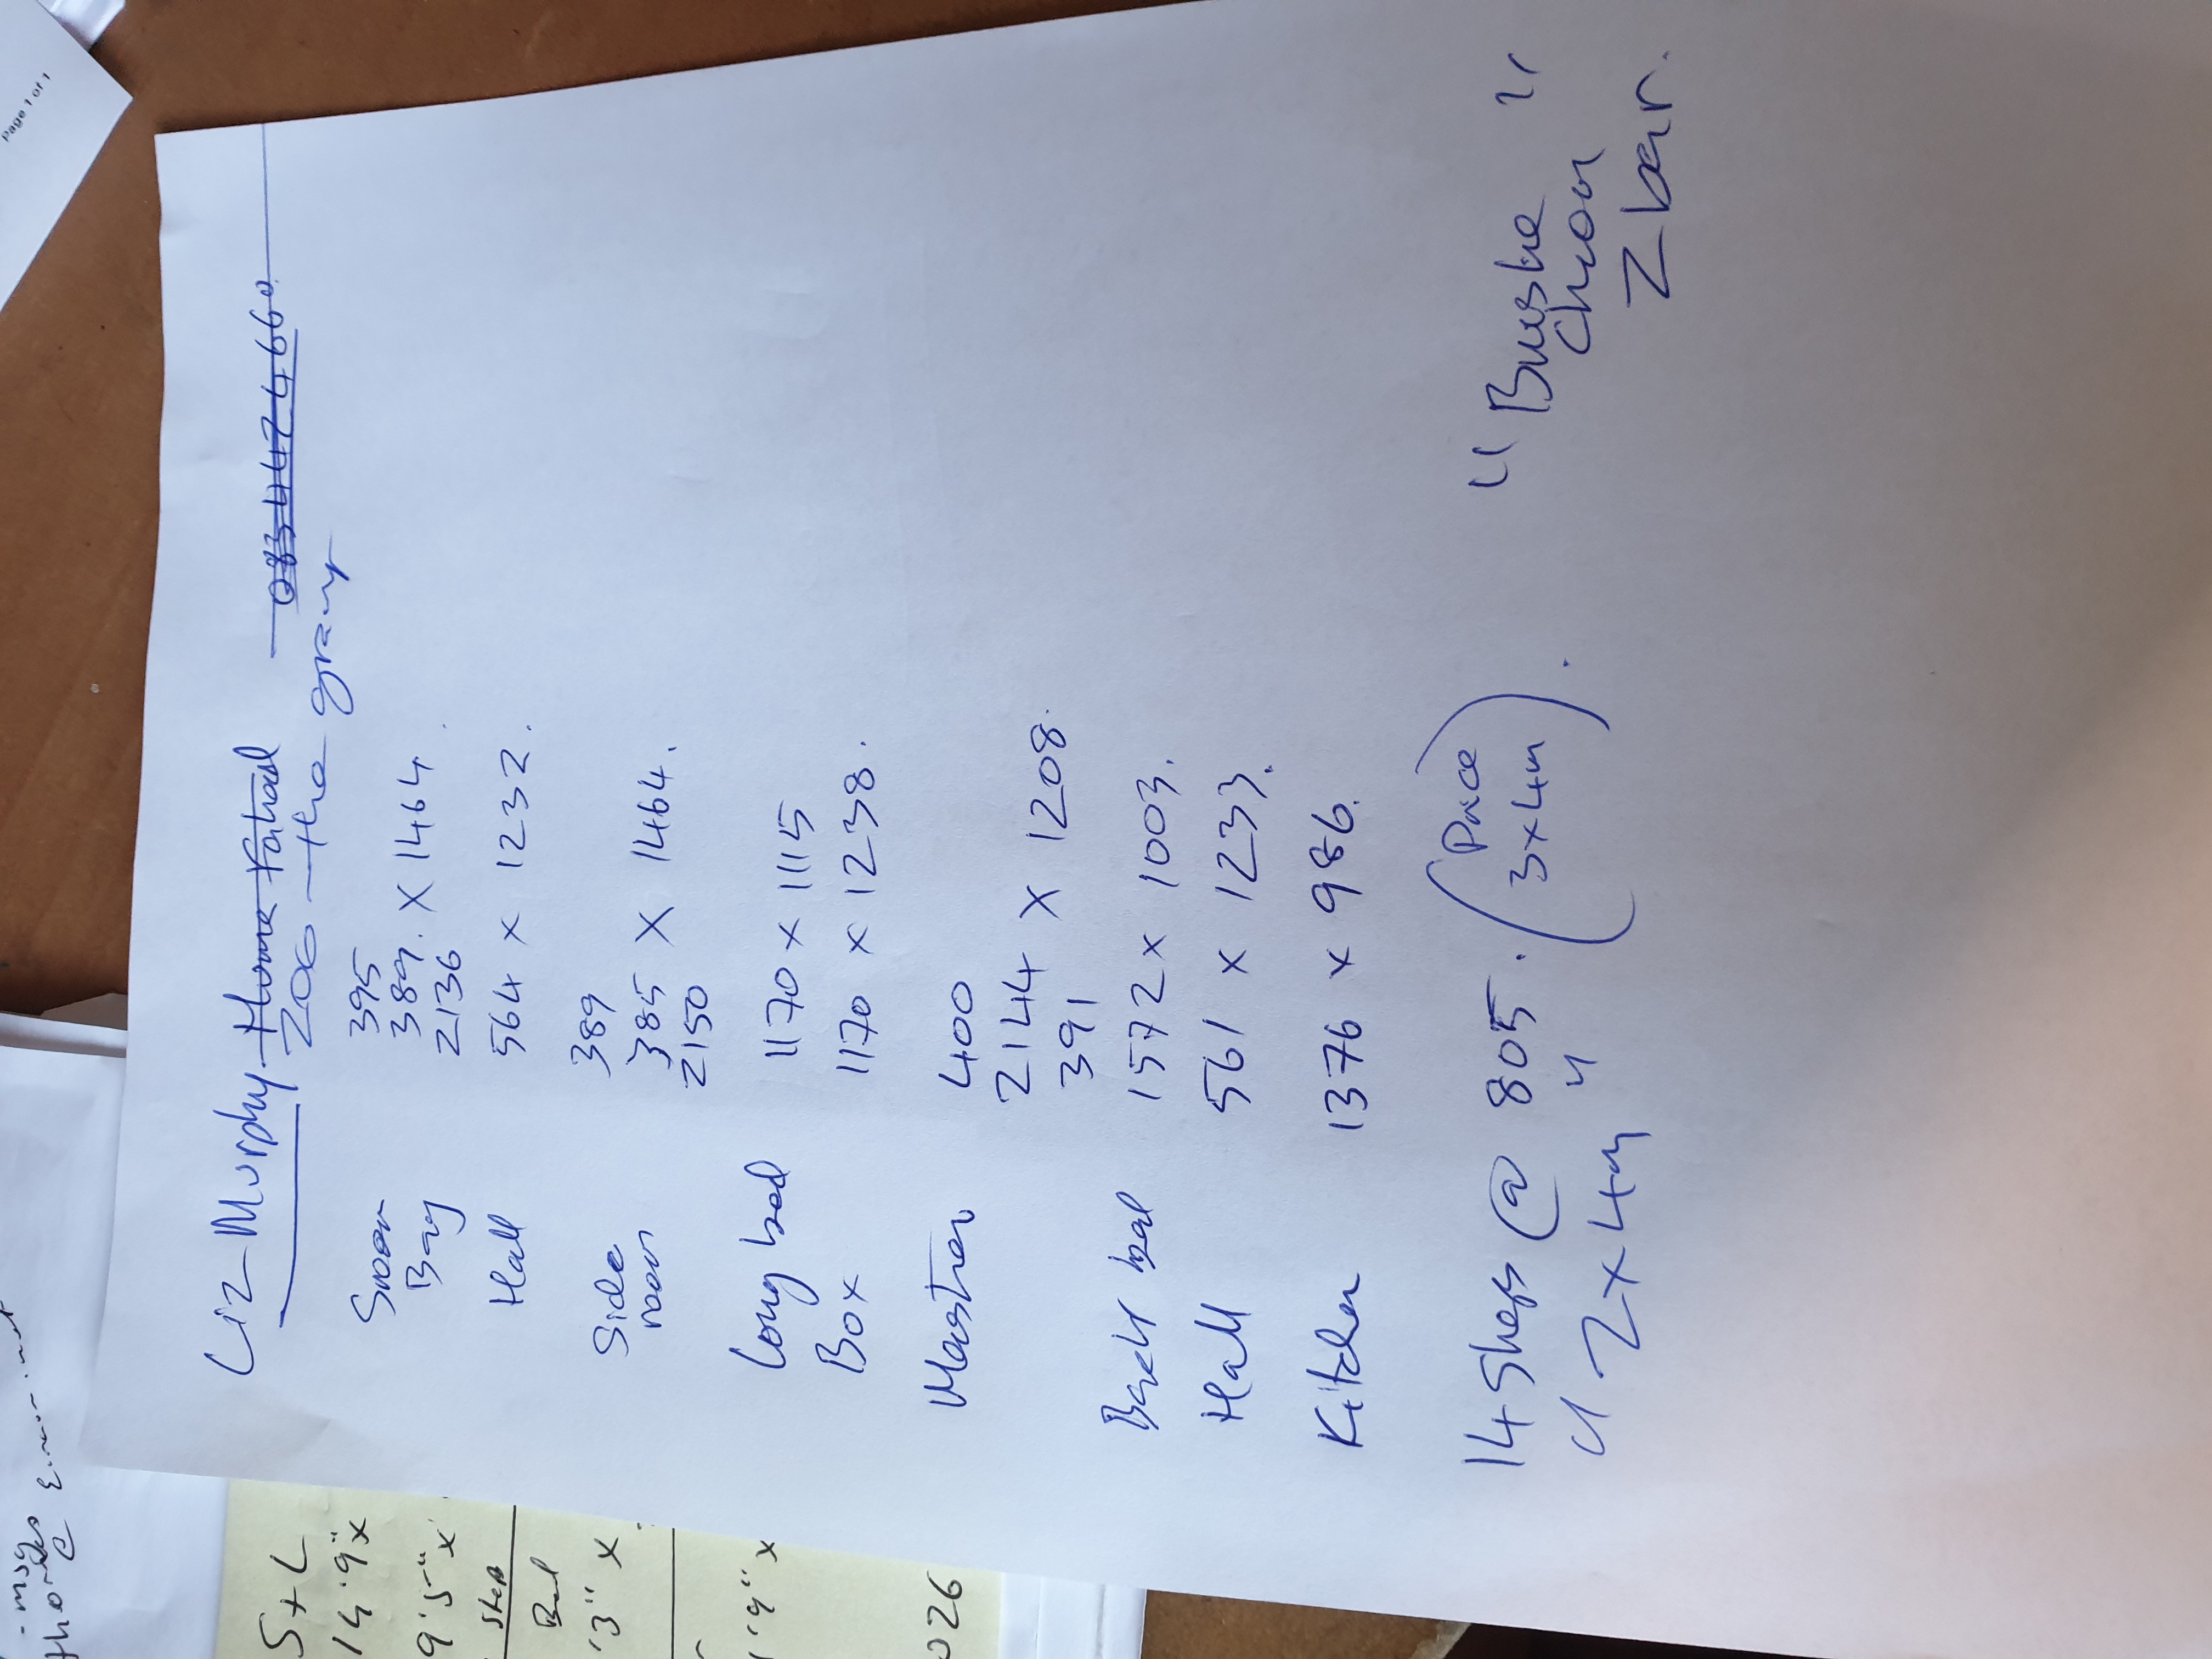 Liz Murphy Home Patrol 0834424660
200 the grany
Snoan
Bay
395
389. X 1464.
2136
Hall 564 x 1232.
Side
room
389
385 X 1464.
2150
Long bed 1170 x 1115
Box 1170 x 1238.
Mastrer
400
2144 X 1208.
391
Back bed 1572 x 1003.
Hall 561 x 1233.
Kitchen 1376 x 986.
14 Steps @ 805. (Price
3x4m).
" 2x4m "
"
Z bar.
Page 1 of 1
S + L
14'9"x
9'5"x
Step
Bed
'3" X
1'9" x
026